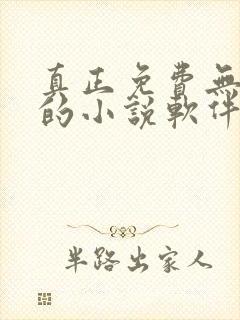 真正免費無
的小說軟件
半路出家人